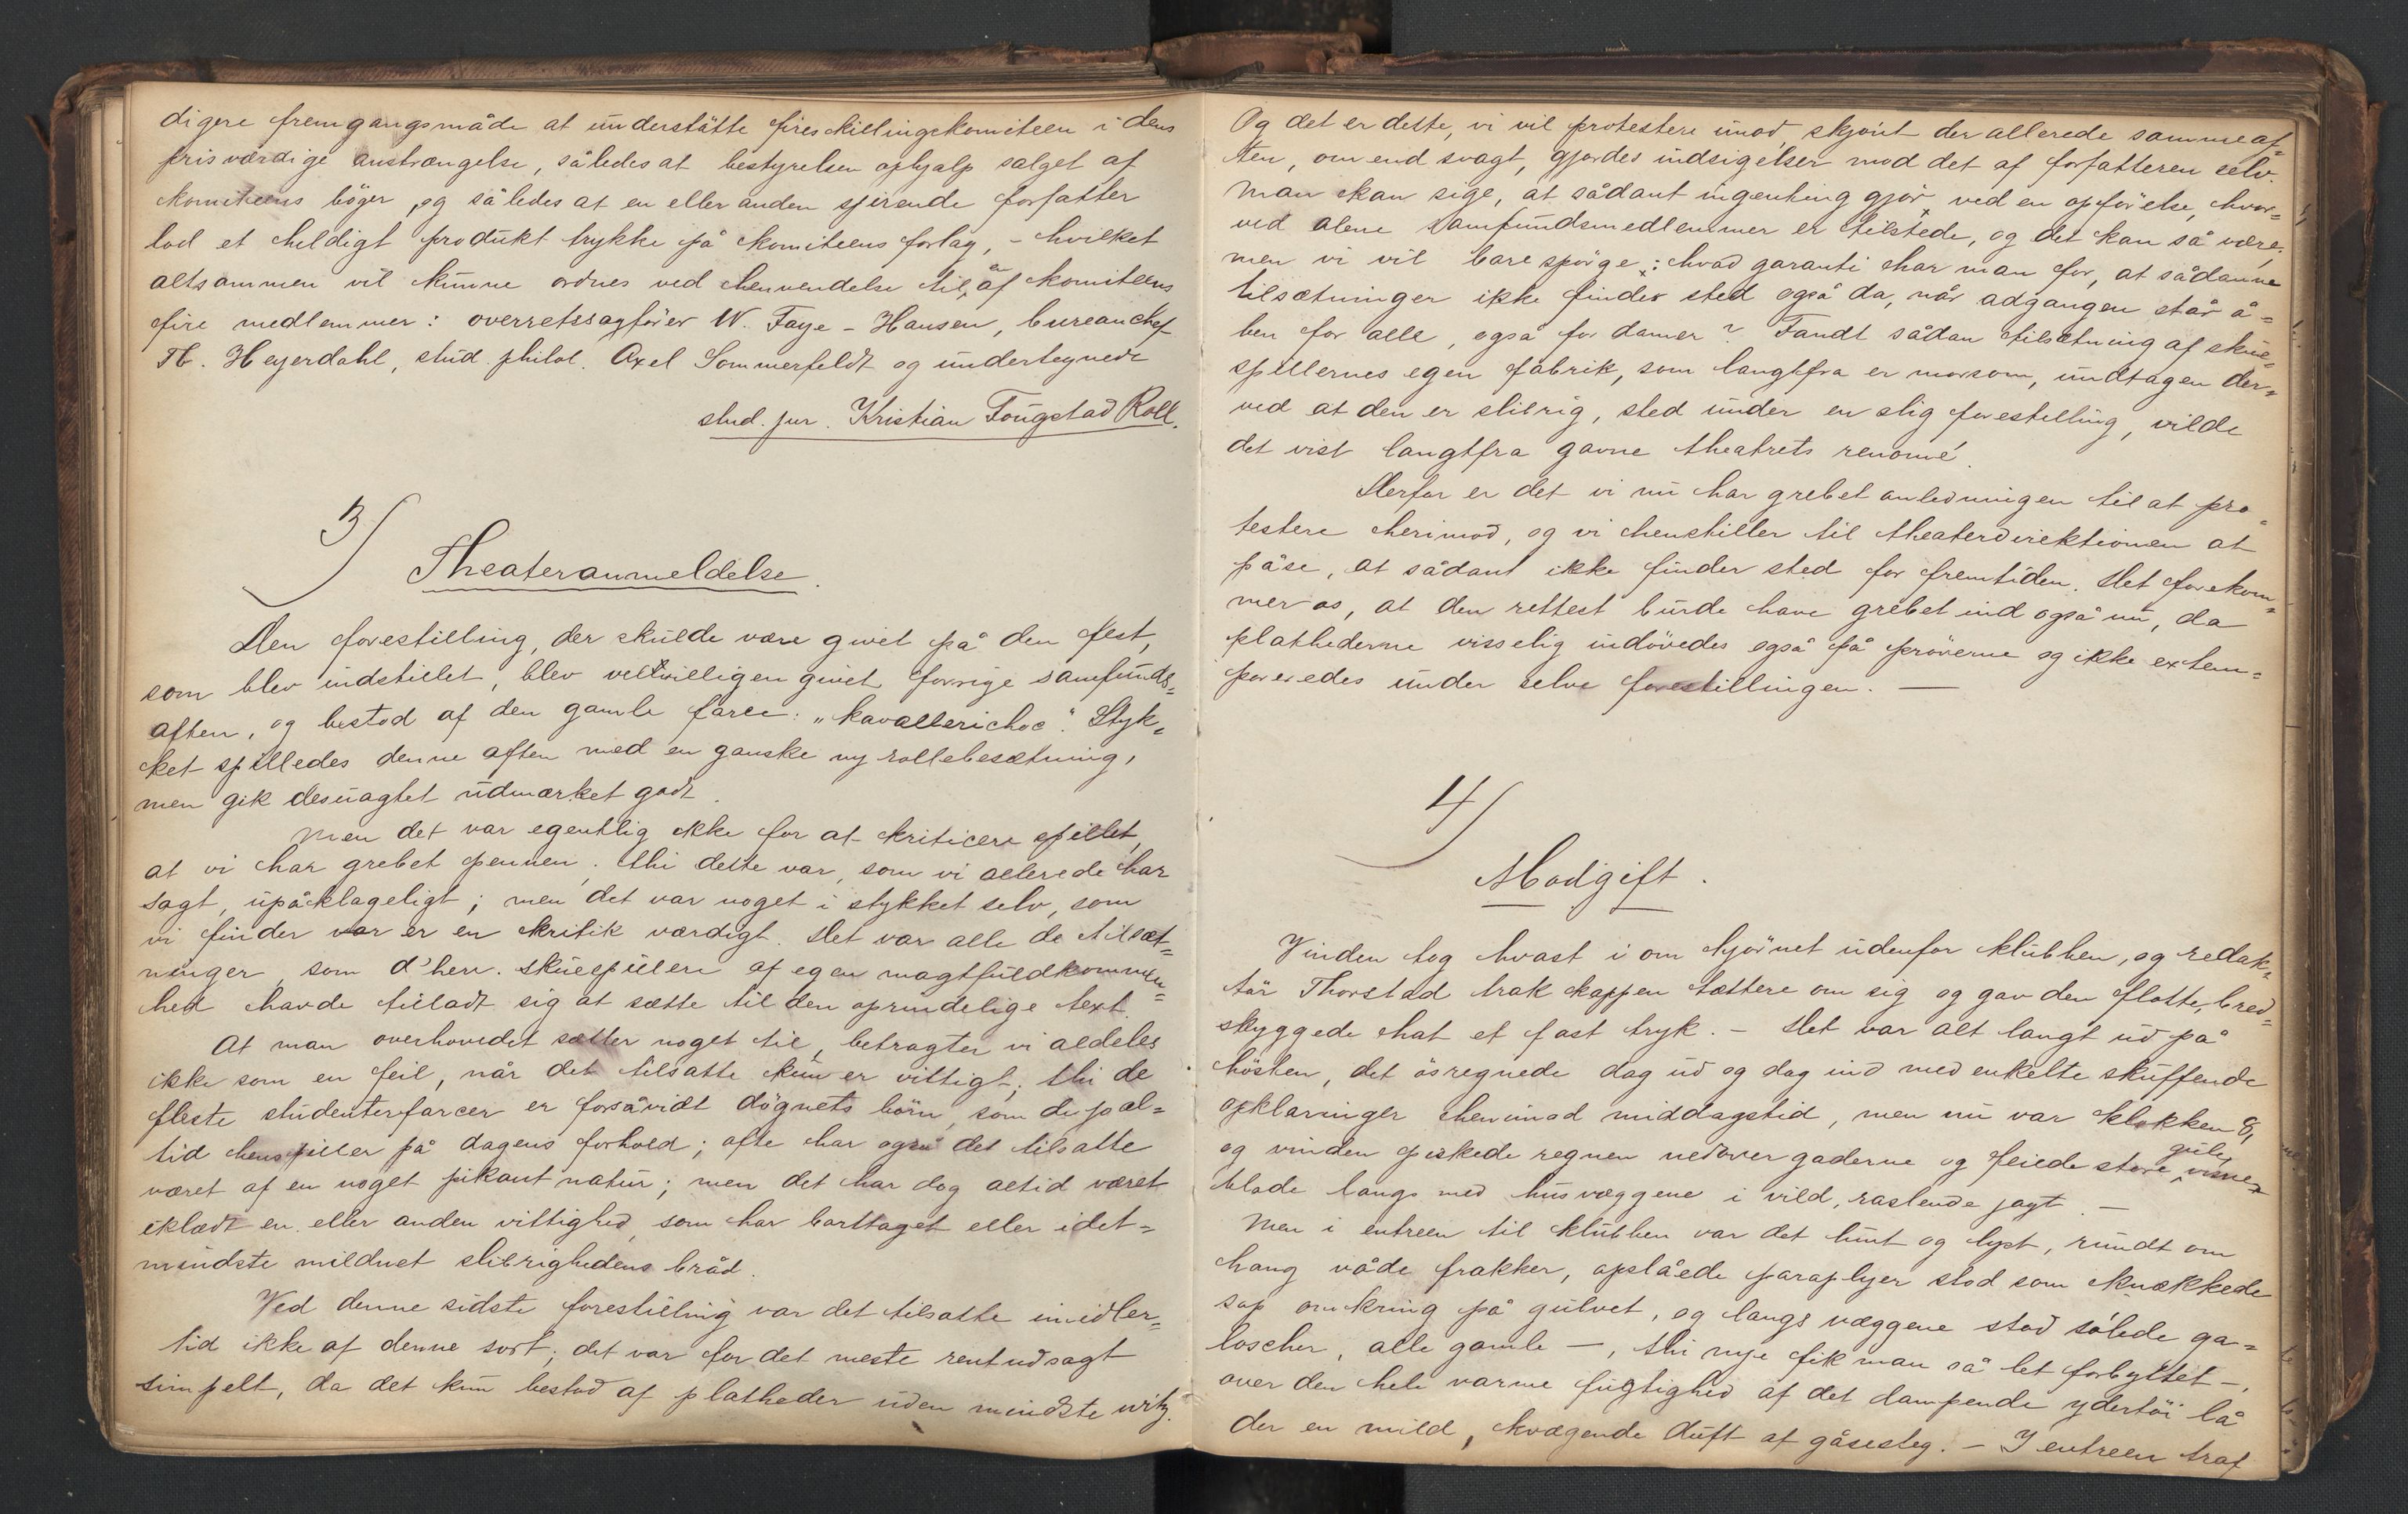 digere fremgangsmåde at understøtte fireskillingskomiteen i dens
prisværdige anstrængelse, således at bestyrelsen ophjalp salget af
komiteens bøger, og således at en eller anden spirende forfatter
lod et heldigt produkt trykke på komiteens forlag, - hvilket
altsammen vil kunne ordnes ved henvendelse til en af komiteens
fire medlemmer: overretssagfører W. Faye-Hansen, bureauchef
Th. Heyerdahl, stud. philol. Axel Sommerfeldt og undertegnede
stud. jur. Kristian Tougstad Roll.
3/
Theateranmeldelse.
Den forestilling, der skulde være givet på den fest,
som blev indstillet, blev velvilligen givet forrige samfunds=
aften, og bestod af den gamle farce: "Kavallerichoc". Styk=
ket spilledes denne aften med en ganske ny rollebesætning,
men gik desuagtet udmærket godt.
Men det var egentlig ikke for at kriticere spillet,
at vi har grebet pennen; thi dette var, som vi allerede har
sagt, upåklageligt; men det var noget i stykket selv, som
vi finder var er en kritik værdigt. Det var alle de tilsæt=
ninger, som d'herr. skuespillere af egen magtfuldkommen=
hed havde tilladt sig at sætte til den oprindelige text.
At man overhovedet sætter noget til, betragter vi aldeles
ikke som en feil, når det tilsatte kun er vittigt; thi de
fleste studenterfarcer er forsåvidt døgnets børn, som de jo al=
tid henspiller på dagens forhold; ofte har også det tilsatte
været af en noget pikant natur; men det har dog altid været
iklædt en eller anden vittighed, som har borttaget eller idet=
mindste mildnet slibrighedens bråd.
Ved denne sidste forestilling var det tilsatte imidler=
tid ikke af denne sort; det var for det meste rent ud sagt
simpelt, da det kun bestod af platheder uden mindste witz.
Og det er dette, vi vil protestere imod, skjønt der allerede samme af=
ten, om end svagt, gjordes indsigelser mod det af forfatteren selv.
Man kan sige, at sådant ingenting gjør ved en opførelse, hvor=
ved alene samfundsmedlemmer er tilstede, og det kan så være,
men vi vil bare spørge: hvad garanti har man for, at sådanne
tilsætninger ikke finder sted også da, når adgangen står å=
ben for alle, også for damer? Fandt sådan tilsætning af skue=
spillernes egen fabrik, som langtfra er morsom, undtagen der=
ved at den er slibrig, sted under en slig forestilling, vilde
det vist langtfra gavne theatrets renommé.
Derfor er det vi nu har grebet anledningen til at pro=
testere herimod, og vi henstiller til theaterdirektionen at
påse, at sådant ikke finder sted for fremtiden. Det forekom=
mer os, at den rettest burde have grebet ind også nu, da
plathederne visselig indøvedes også på prøverne og ikke extem=
poreredes under selve forestillingen. —
4/
Modgift.
Vinden tog hvast i om hjørnet udenfor klubben, og redak=
tør Thorstad trak kappen tættere om sig og gav den flotte, bred=
skyggede hat et fast tryk. - Det var alt langt ud på
høsten, det øsregnede dag ud og dag ind med enkelte skuffende
opklaringer henimod middagstid, men nu var klokken 8,
og vinden piskede regnen nedover gaderne og feiede store, gule, visne
blade langs med husvæggene i vild, raslende jagt. —
Men i entreen til klubben var det lunt og lyst, rundt om
hang våde frakker, opslåede paraplyer stod som knækkede
sop omkring på gulvet, og langs væggene stod sølede ga=
loscher, alle gamle —, thi nye fik man så let forbyttet —,
over den hele varme fugtighed af det dampende ydertøi lå
der en mild, kvægende duft af gåsesteg. - I entreen traf